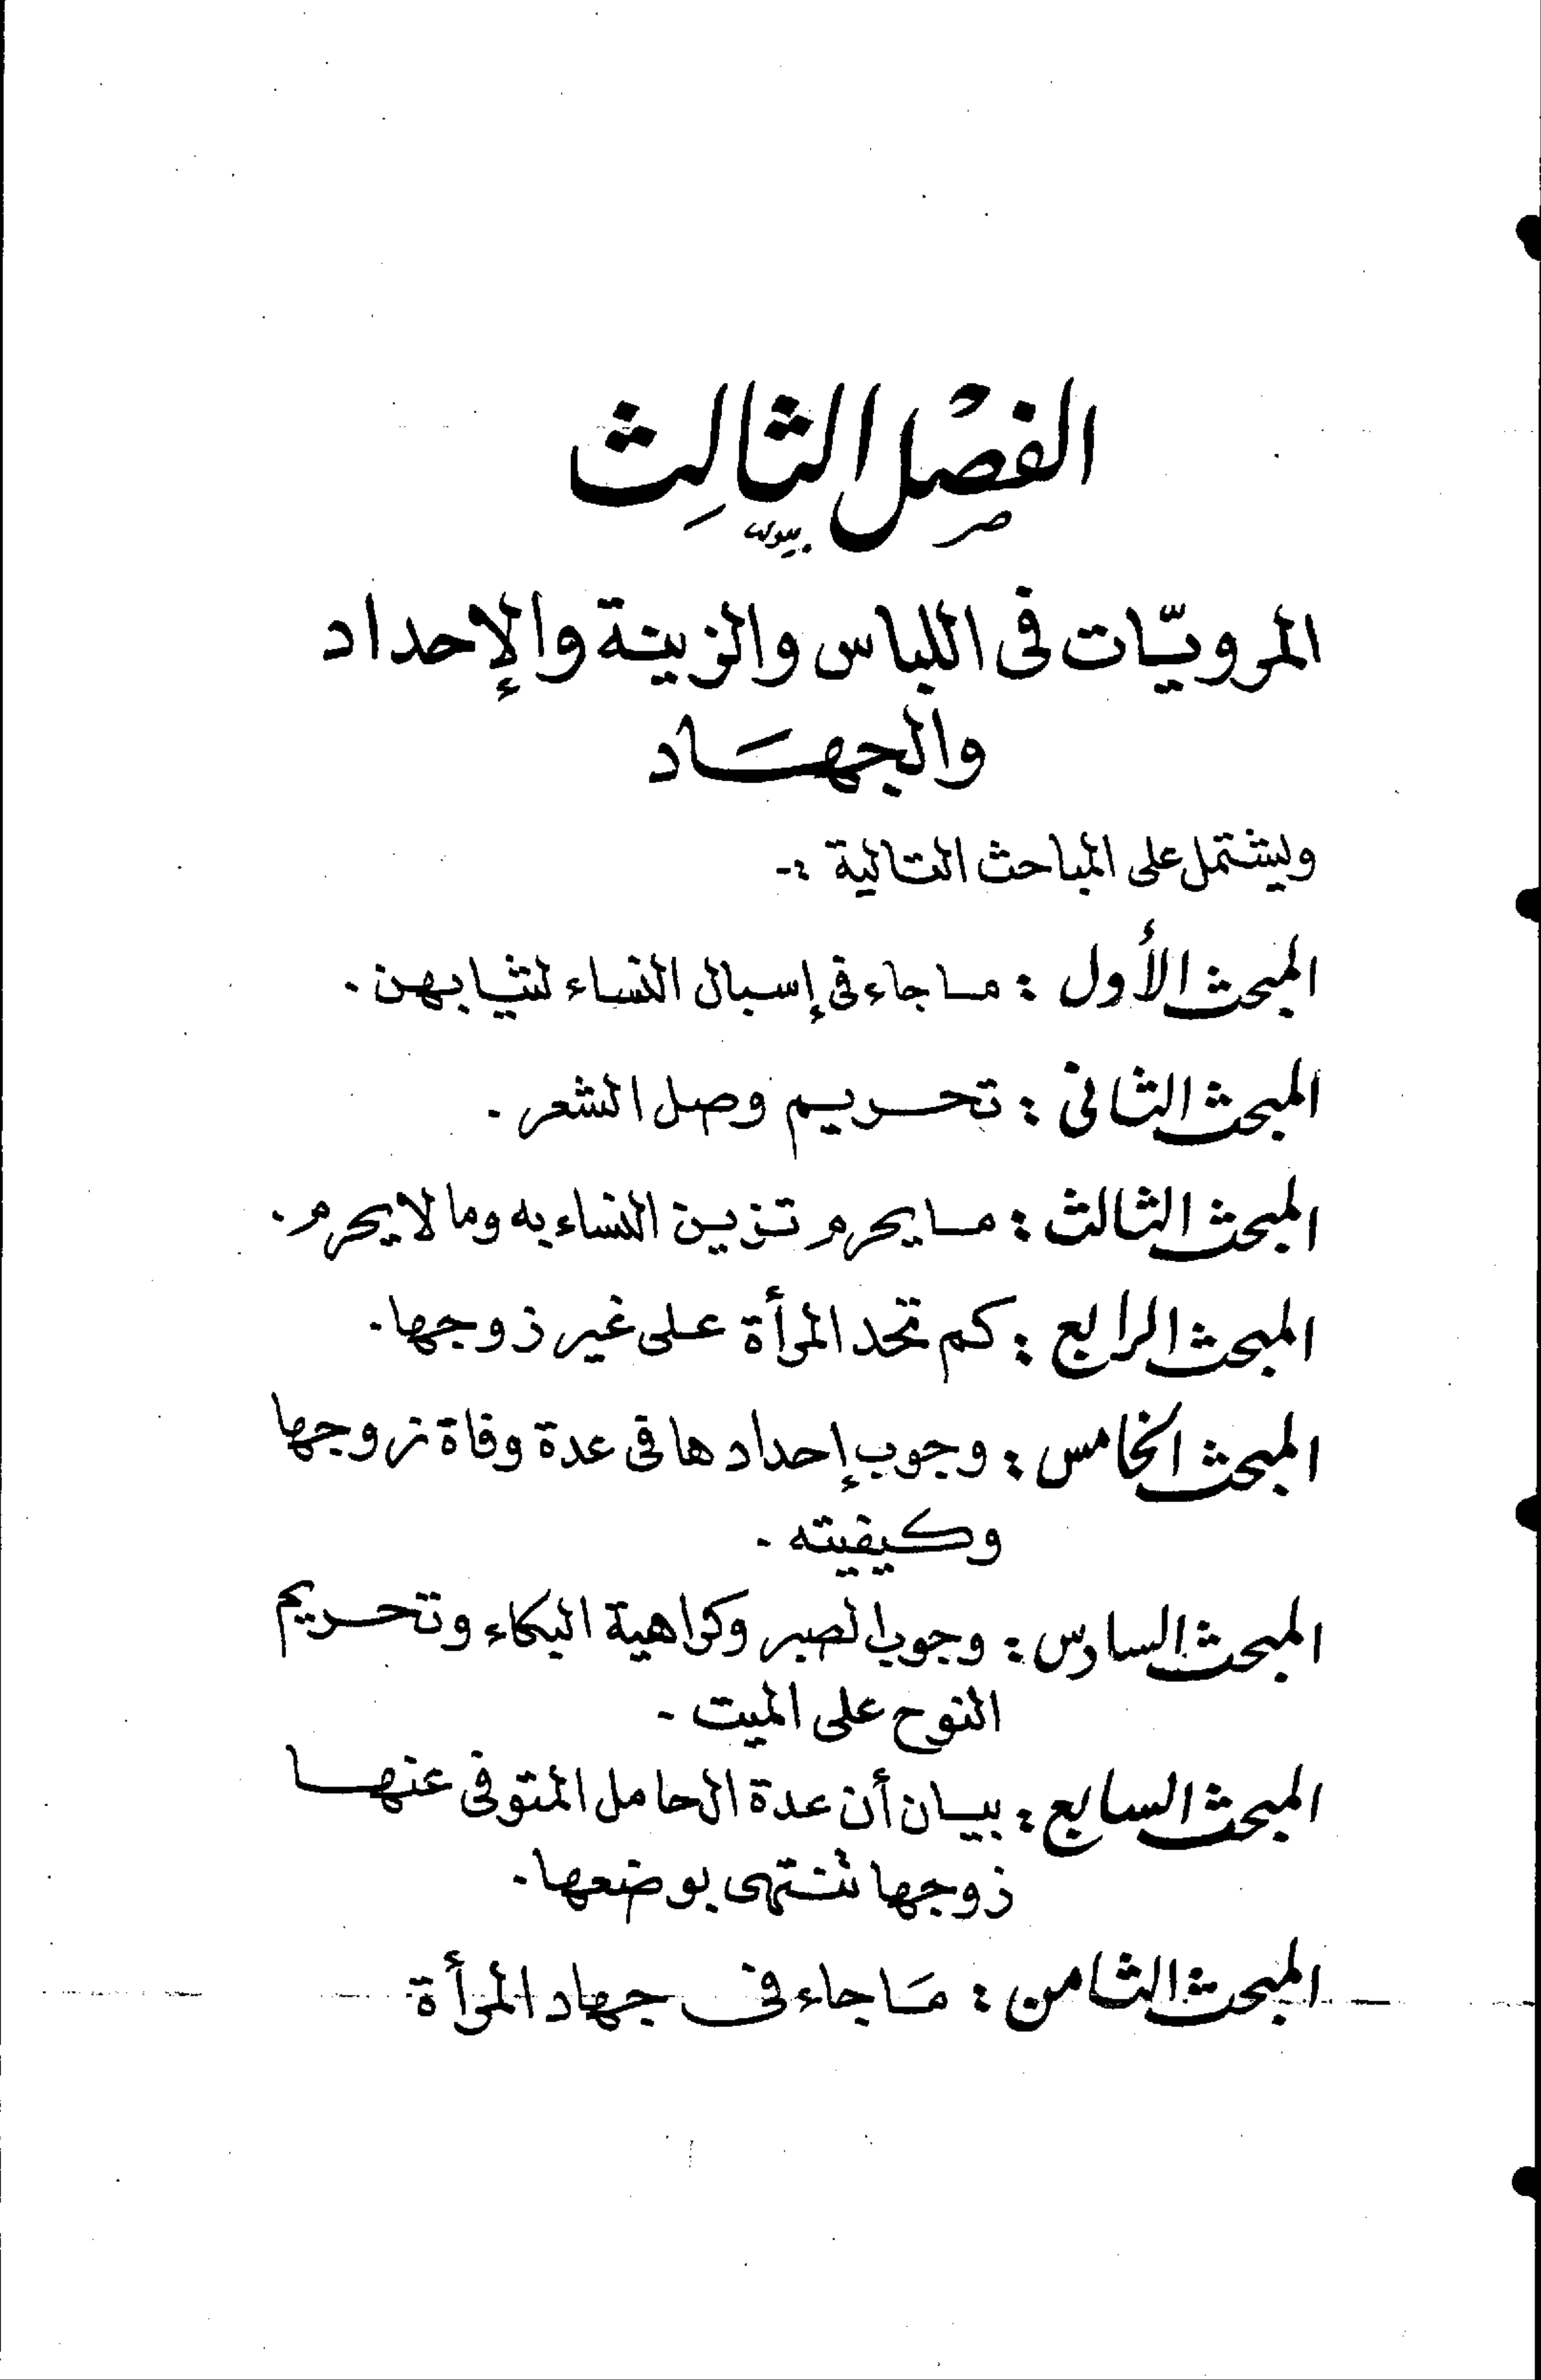 الفصْل الثالِث
المرويّات فى اللباس والزينة والإحداد
والجهَاد
ويشتمل على المباحث التالية :-
المبحث الأول : ما جاء فى إسبال النساء لثيابهن .
المبحث الثانى : تحريم وصل الشعر .
المبحث الثالث : ما يحرم تزين النساء به وما لا يحرم .
المبحث الرابع : كم تحد المرأة على غير زوجها .
المبحث الخامس : وجوب إحدادها فى عدة وفاة زوجها
وكيفيته .
المبحث السادس : وجوب الصبر وكراهية البكاء وتحريم
النوح على الميت .
المبحث السابع : بيان أن عدة الحامل المتوفى عنها
زوجها تنتهى بوضعها .
المبحث الثامن : مَا جاء فى جهاد المرأة